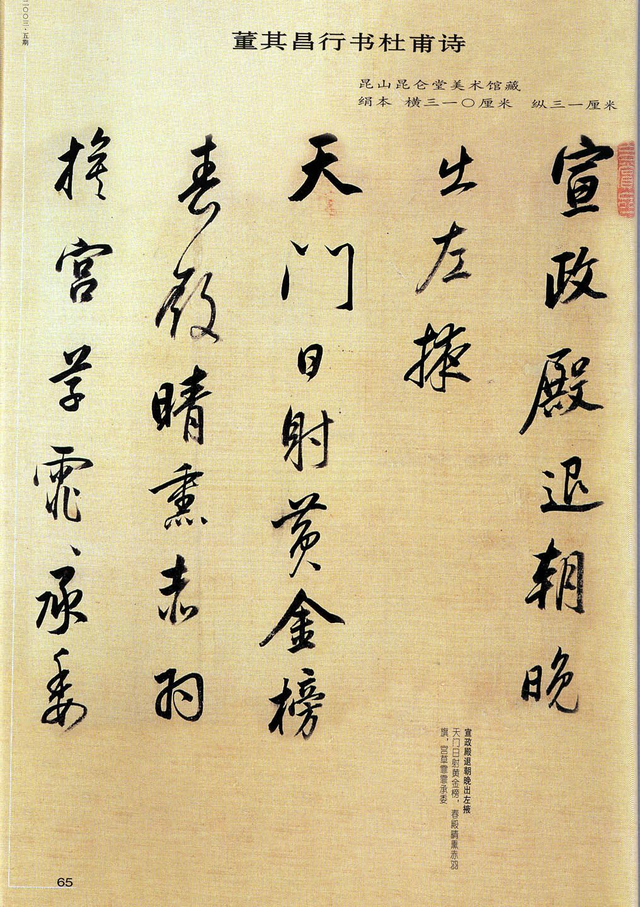 二〇〇三·五期
董其昌行书杜甫诗
昆山昆仑堂美术馆藏
绢本 横三一〇厘米 纵三一厘米
宣政殿退朝晚
出左掖
天门日射黄金榜
春殿晴熏赤羽
旗宫草霏〻承委
宣政殿退朝晚出左掖
天门日射黄金榜，春殿晴熏赤羽
旗，宫草霏霏承委
65